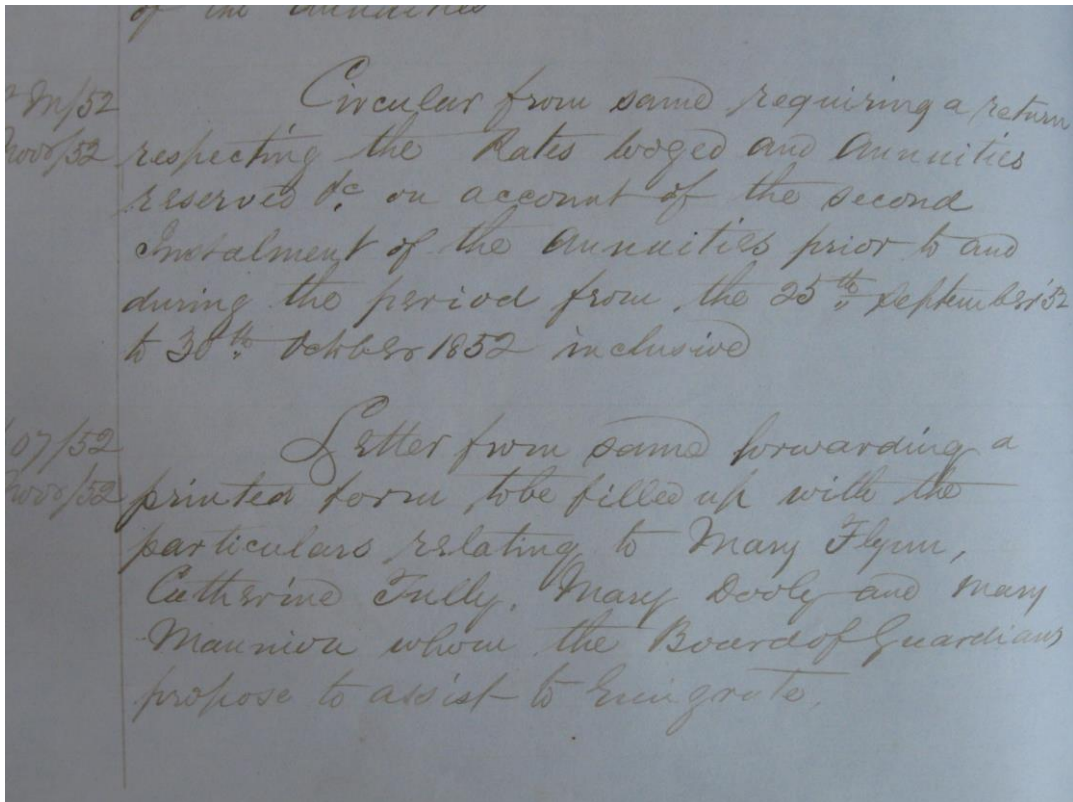 of the Annuities
M/52
Circular from same requiring a return
Novr/52 respecting the Rates lodged and Annuities
reserved &c on account of the second
Instalment of the Annuities prior to and
during the period from the 25th September '52
to 30th October 1852 inclusive
07/52
Letter from same forwarding a
Novr/52 printed form to be filled up with the
particulars relating to Mary Flynn,
Catherine Tully, Mary Dooly and Mary
Mannion whom the Board of Guardians
propose to assist to Emigrate.